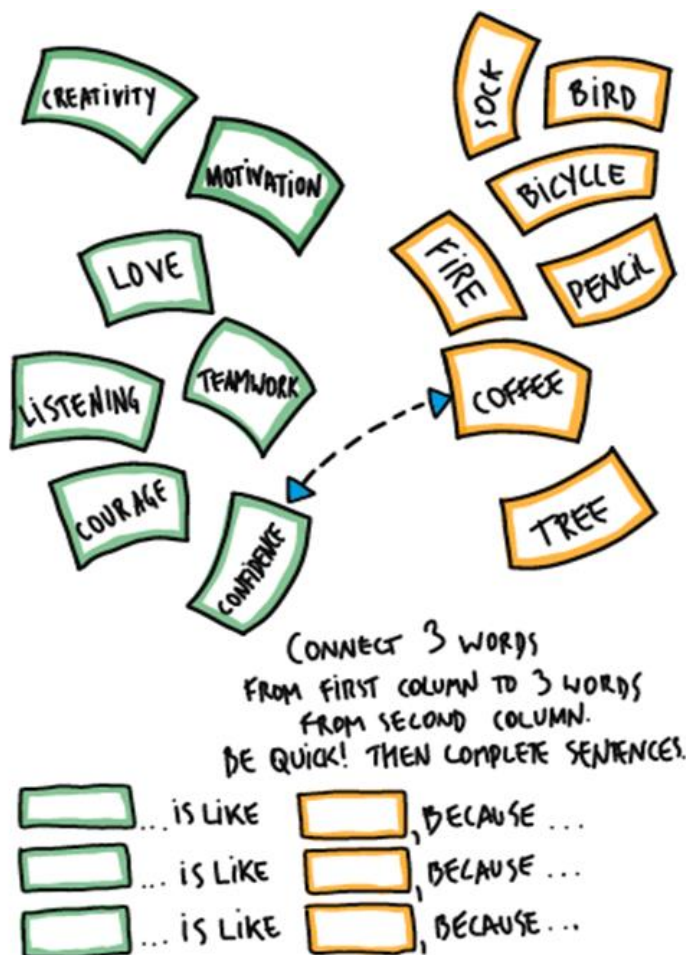 CREATIVITY
MOTIVATION
LOVE
LISTENING
TEAMWORK
COURAGE
CONFIDENCE
SOCK
BIRD
BICYCLE
FIRE
PENCIL
COFFEE
TREE
CONNECT 3 WORDS
FROM FIRST COLUMN TO 3 WORDS
FROM SECOND COLUMN.
BE QUICK! THEN COMPLETE SENTENCES.
... IS LIKE , BECAUSE ...
... IS LIKE , BECAUSE ...
... IS LIKE , BECAUSE ...